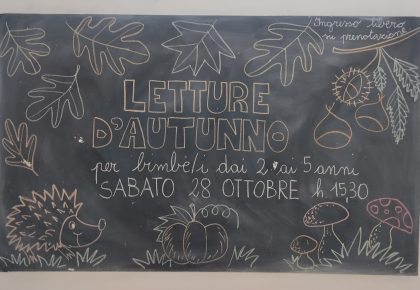 Ingresso libero
su prenotazione
LETTURE
D'AUTUNNO
per bimbə/i dai 2 ai 5 anni
SABATO 28 OTTOBRE h 15,30